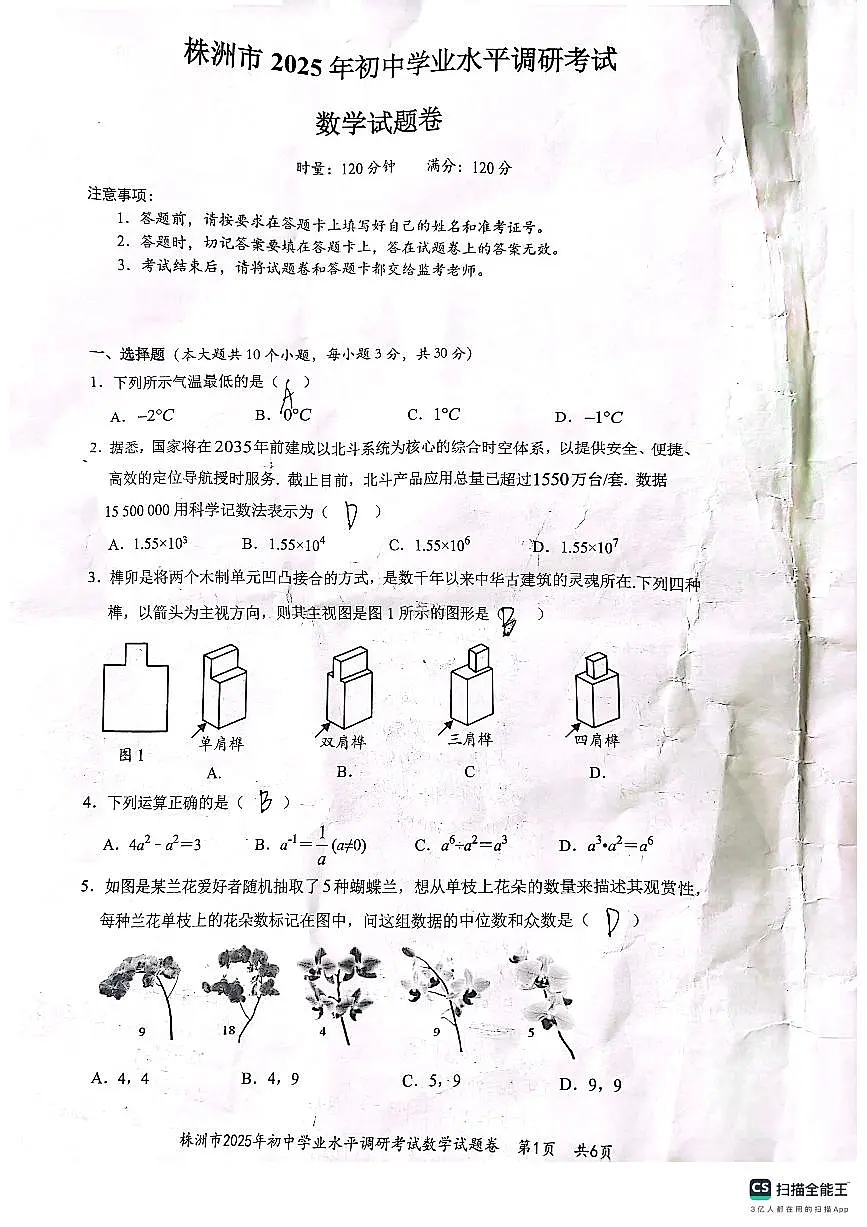 株洲市2025年初中学业水平调研考试
数学试题卷
时量：120分钟 满分：120分
注意事项：
1．答题前，请按要求在答题卡上填写好自己的姓名和准考证号。
2．答题时，切记答案要填在答题卡上，答在试题卷上的答案无效。
3．考试结束后，请将试题卷和答题卡都交给监考老师。
一、选择题（本大题共10个小题，每小题3分，共30分）
1．下列所示气温最低的是（ A ）
A．−2°C B．0°C C．1°C D．−1°C
2．据悉，国家将在2035年前建成以北斗系统为核心的综合时空体系，以提供安全、便捷、
高效的定位导航授时服务．截止目前，北斗产品应用总量已超过1550万台/套．数据
15 500 000用科学记数法表示为（ D ）
A．1.55×10³ B．1.55×10⁴ C．1.55×10⁶ D．1.55×10⁷
3．榫卯是将两个木制单元凹凸接合的方式，是数千年以来中华古建筑的灵魂所在．下列四种
榫，以箭头为主视方向，则其主视图是图1所示的图形是（ B ）
图1 单肩榫 双肩榫 三肩榫 四肩榫
A. B. C D.
4．下列运算正确的是（ B ）
A．4a²﹣a²＝3 B．a⁻¹＝1/a (a≠0) C．a⁶÷a²＝a³ D．a³•a²＝a⁶
5．如图是某兰花爱好者随机抽取了5种蝴蝶兰，想从单枝上花朵的数量来描述其观赏性，
每种兰花单枝上的花朵数标记在图中，问这组数据的中位数和众数是（ D ）
9 18 4 9 5
A．4，4 B．4，9 C．5，9 D．9，9
株洲市2025年初中学业水平调研考试数学试题卷 第1页 共6页
CS 扫描全能王
3亿人都在用的扫描App